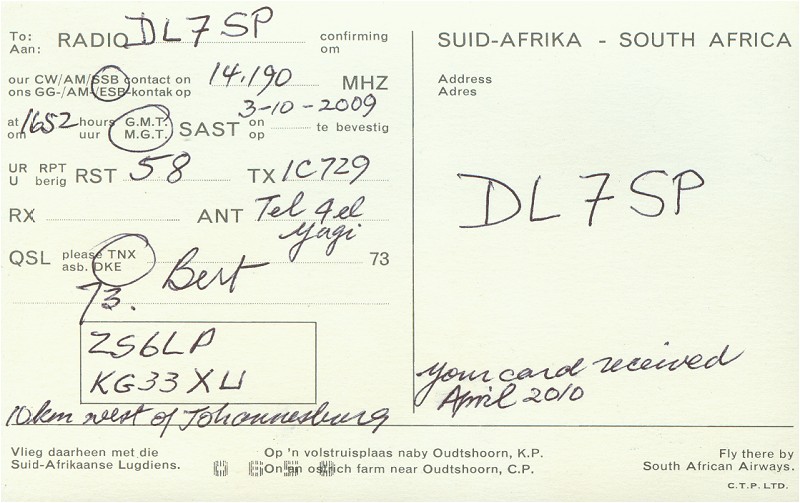 To:
Aan: RADIO DL7SP confirming
om
our CW/AM/SSB contact on
ons GG-/AM-/ESB-kontak op 14.190 MHZ
at
om 1652 hours
uur G.M.T.
M.G.T. SAST on
op 3-10-2009 te bevestig
UR RPT
U berig RST 58 TX IC729
RX ANT Tel 4el
yagi
QSL please TNX
asb. DKE 73
73. Bert
ZS6LP
KG33XU
10km west of Johannesburg
SUID-AFRIKA - SOUTH AFRICA
Address
Adres
DL7SP
your card received
April 2010
Vlieg daarheen met die
Suid-Afrikaanse Lugdiens.
Op 'n volstruisplaas naby Oudtshoorn, K.P.
On an ostrich farm near Oudtshoorn, C.P.
Fly there by
South African Airways.
C.T.P. LTD.